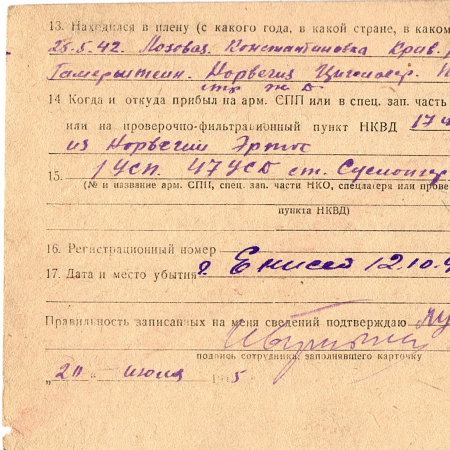 13. Находился в плену (с какого года, в какой стране, в каком
28.5.42. Лозовая. Константиновка Крив.
Гамерштейн. Норвегия
14 Когда и откуда прибыл на арм. СПП или в спец. зап. часть
или на проверочно-фильтрационный пункт НКВД 17
из Норвегии
15. 1 УСП. 47 УСД ст. Суслонгер
(№ и название арм. СПП, спец. зап. части НКО, спецлагеря или прове
пункта НКВД)
16. Регистрационный номер
17. Дата и место убытия г. Енисей 12.10.4
Правильность записанных на меня сведений подтверждаю
подпись сотрудника, заполнявшего карточку
" 20 " июля 5